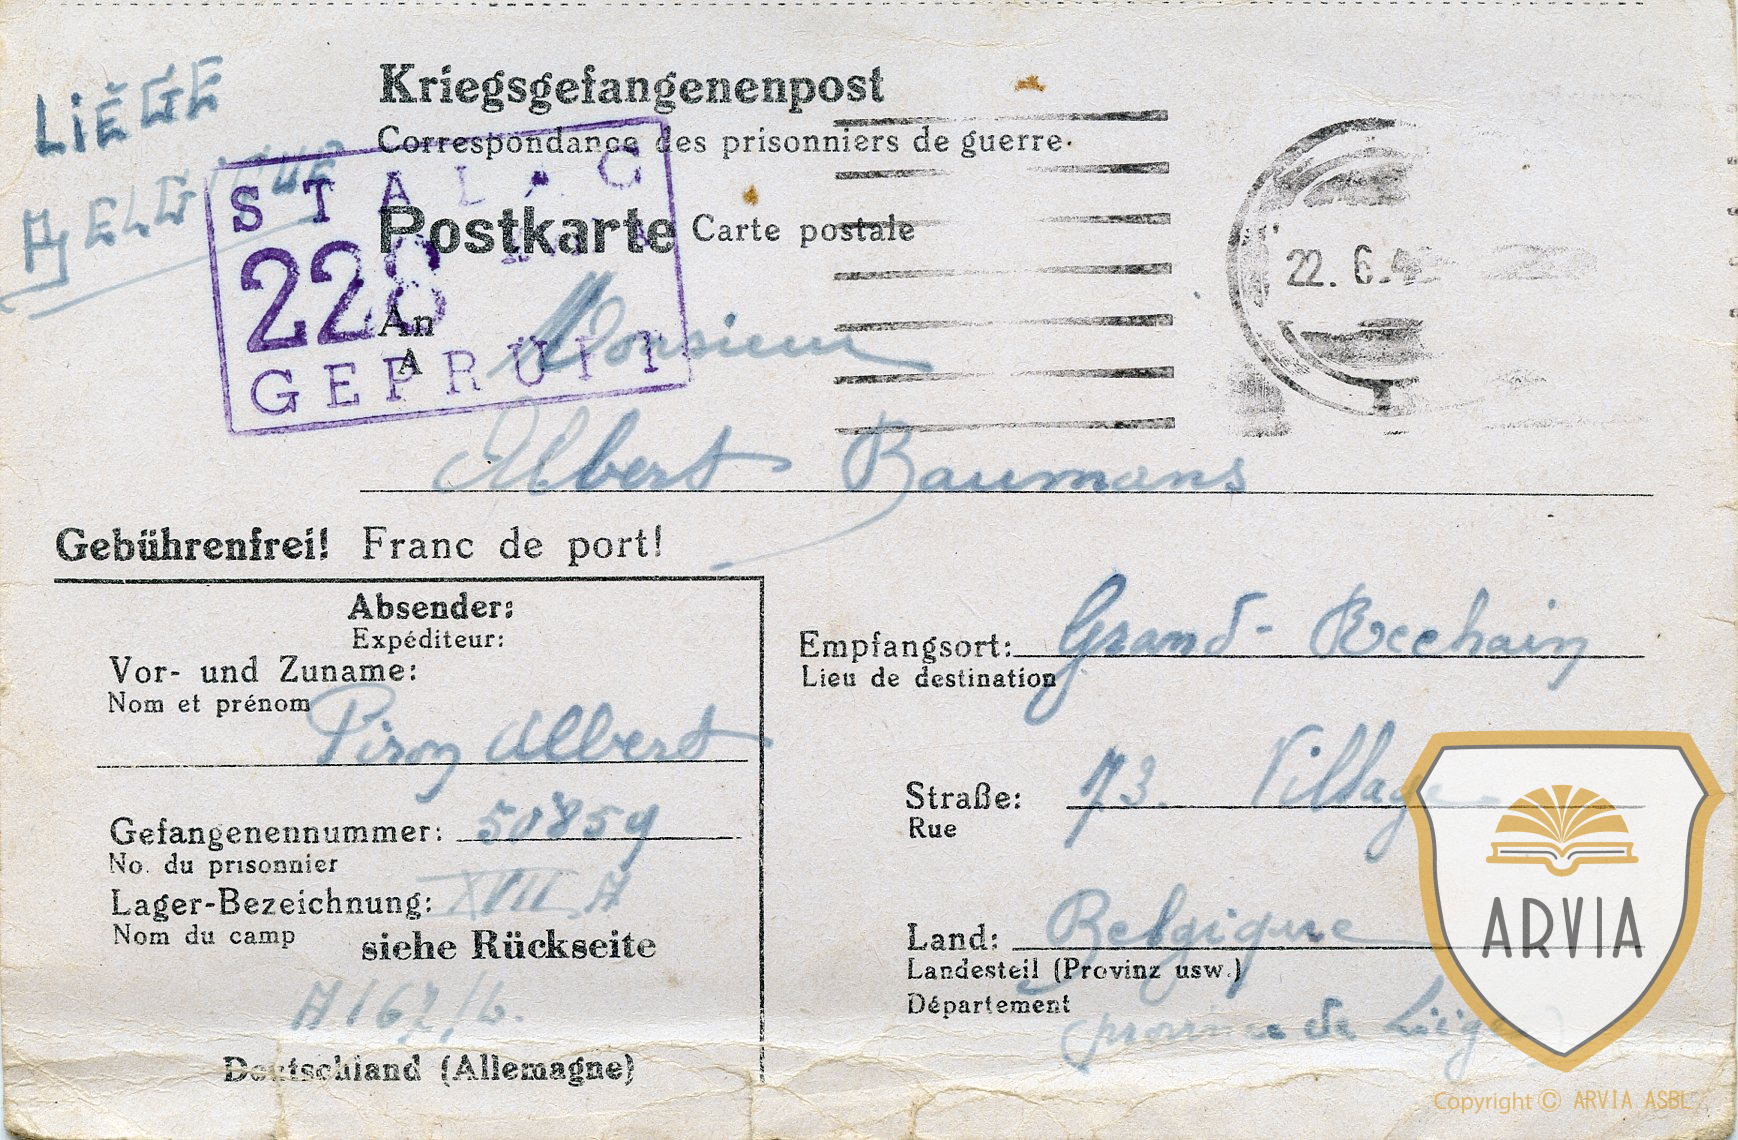 LIÈGE
BELGIQUE
Kriegsgefangenenpost
Correspondance des prisonniers de guerre
Postkarte Carte postale
STALAG
228
GEPRÜFT
22.6.4
An
A
Monsieur
Albert Baumans
Gebührenfrei! Franc de port!
Absender:
Expéditeur:
Vor- und Zuname:
Nom et prénom
Piron Albert
Gefangenennummer: 50859
No. du prisonnier
Lager-Bezeichnung: XVII A
Nom du camp
siehe Rückseite
Deutschland (Allemagne)
Empfangsort: Grand-Rechain
Lieu de destination
Straße: 73. Village
Rue
Land: Belgique
Landesteil (Provinz usw.)
Département
(province de Liège)
ARVIA
Copyright © ARVIA ASBL